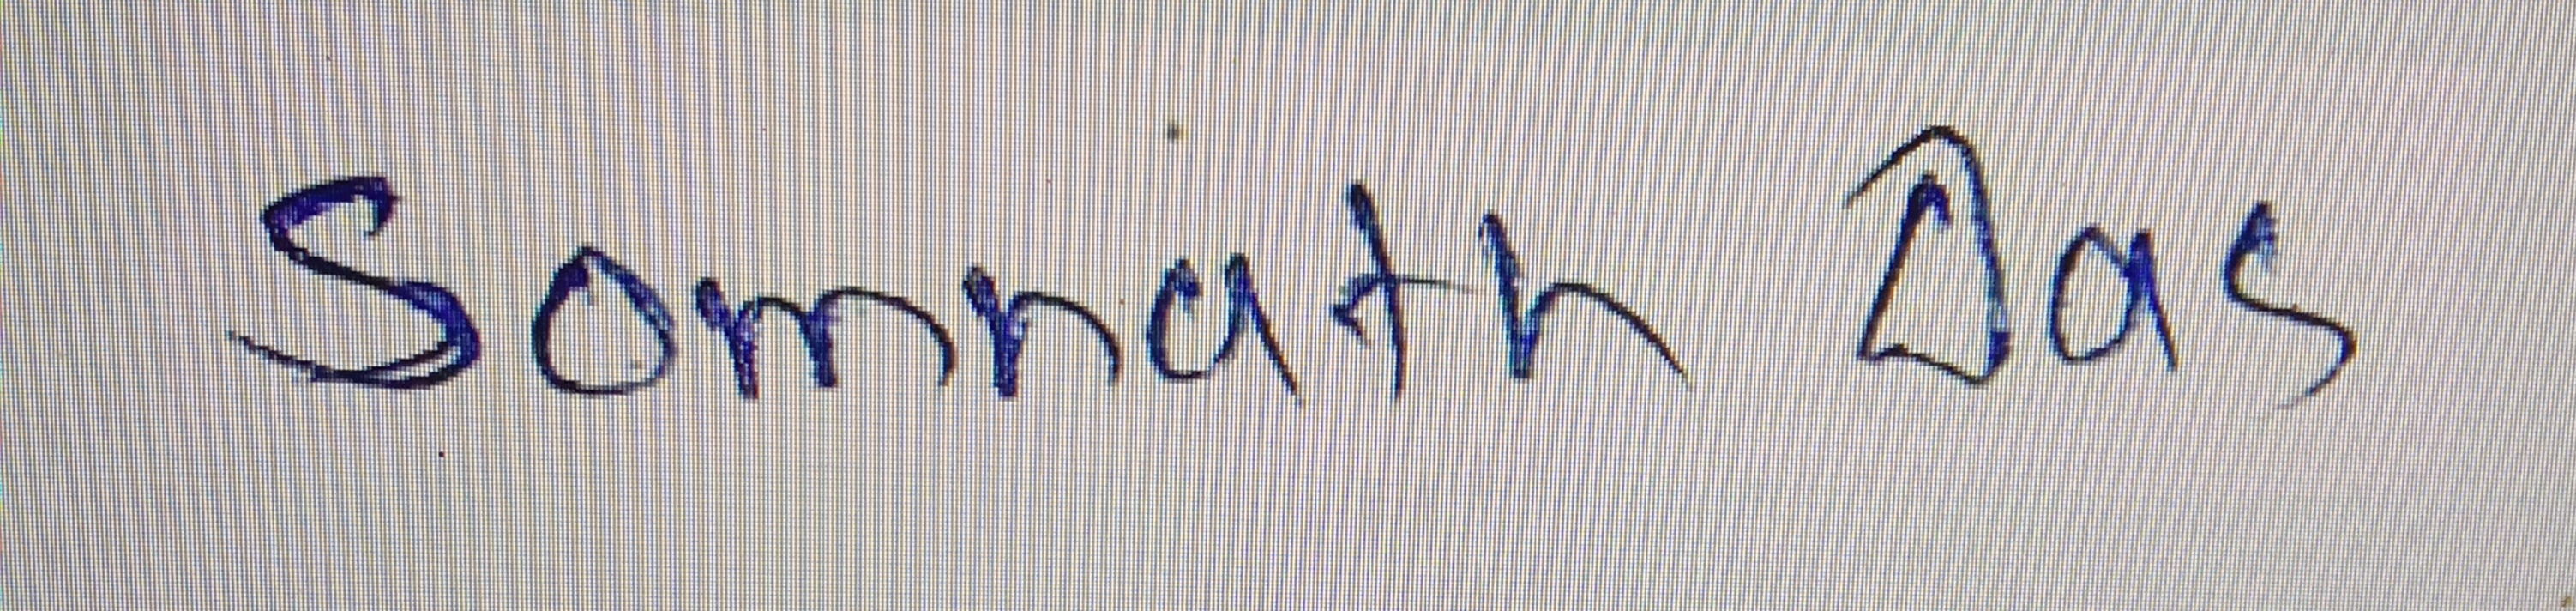 Somnath Das